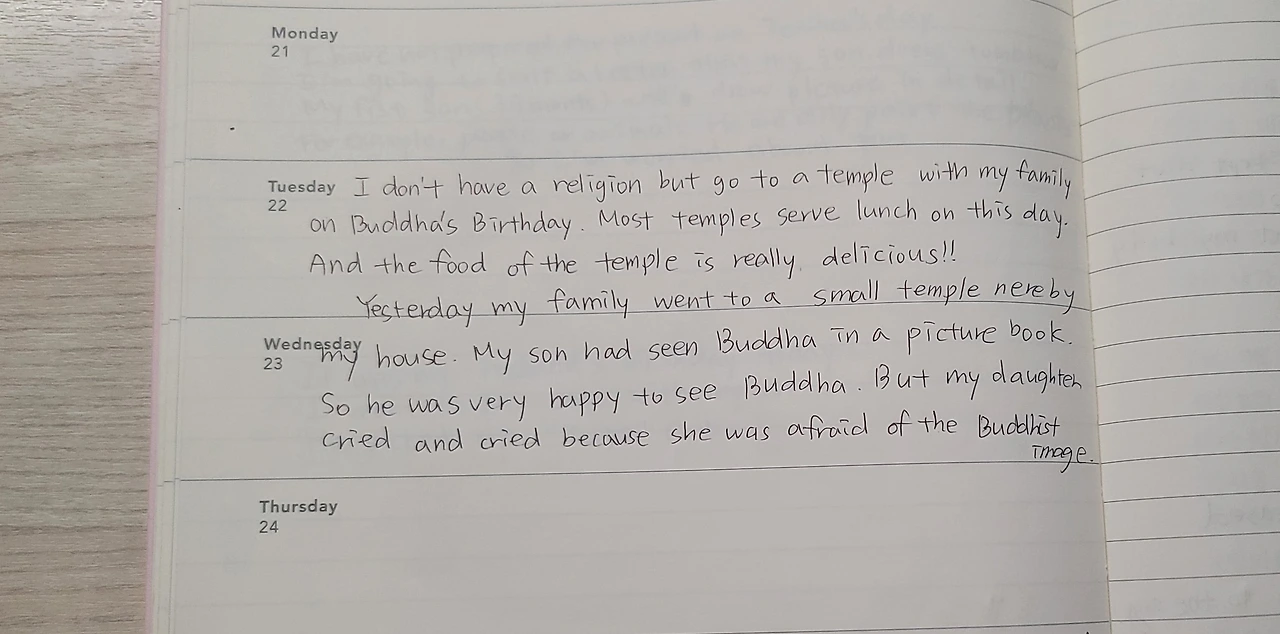 Monday
21
Tuesday I don't have a religion but go to a temple with my family
22
on Buddha's Birthday. Most temples serve lunch on this day.
And the food of the temple is really delicious!!
Yesterday my family went to a small temple nereby
Wednesday
23
my house. My son had seen Buddha in a picture book.
So he was very happy to see Buddha. But my daughter
cried and cried because she was afraid of the Buddhist
image.
Thursday
24